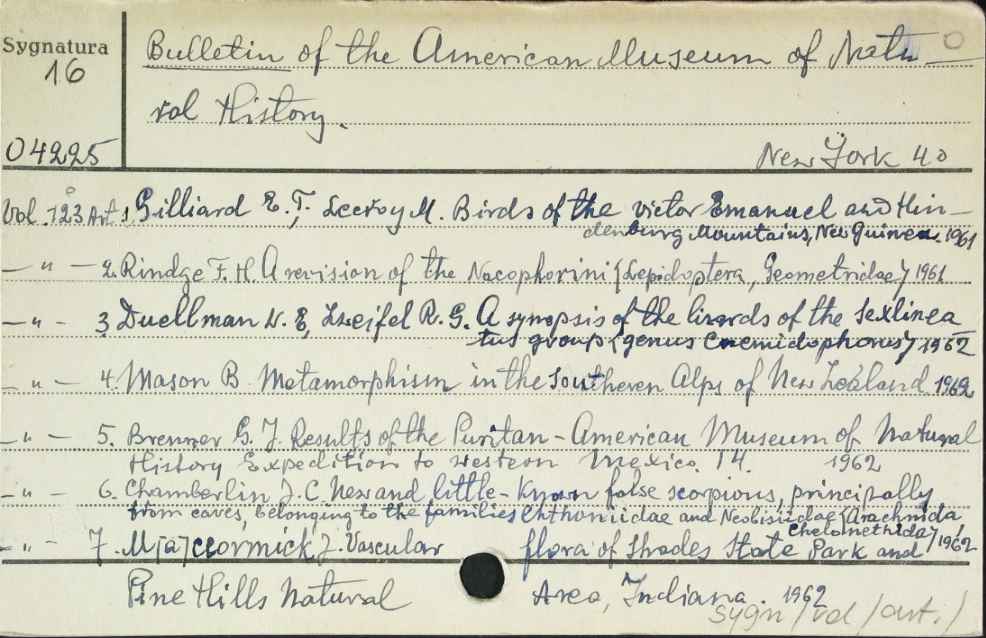 Sygnatura
16
04225
Bulletin of the American Museum of Natu-
ral History.
New York 40
Vol. 123 Art 1. Gilliard E. T., Lecroy M. Birds of the victor Emanuel and Hin-
denburg Mountains, New Guinea. 1961
— " — 2. Rindge F. H. A revision of the Nacophorini (Lepidoptera, Geometridae) 1961
— " — 3. Duellman W. E, Zweifel R. G. A synopsis of the lizards of the sexlinea
tus group (genus Cnemidophorus) 1962
— " — 4. Mason B. Metamorphism in the Southeren Alps of New Zealand 1962
— " — 5. Brenner G. J. Results of the Puritan-American Museum of Natural
History Expedition to western Mexico. 14. 1962
— " — 6. Chamberlin J. C. New and little-known false scorpions, principally
from caves, belonging to the families Chthoniidae and Neobisiidae (Arachnida
Chelonethida) 1962
— " — 7. M[a]ccormick J. Vascular flora of Shades State Park and
Pine Hills Natural Area, Indiana. 1962
sygn/vol/art./